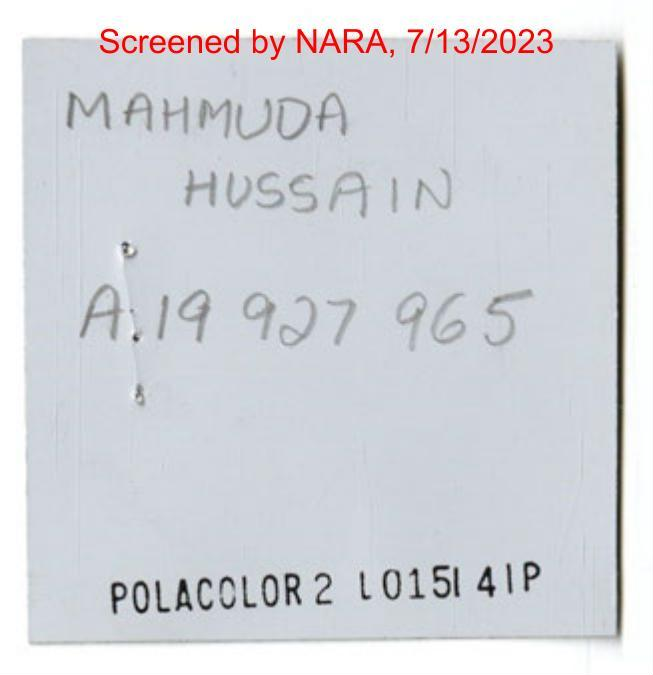 Screened by NARA, 7/13/2023
MAHMUDA
HUSSAIN
A.19 927 965
POLACOLOR 2 L015I 4IP